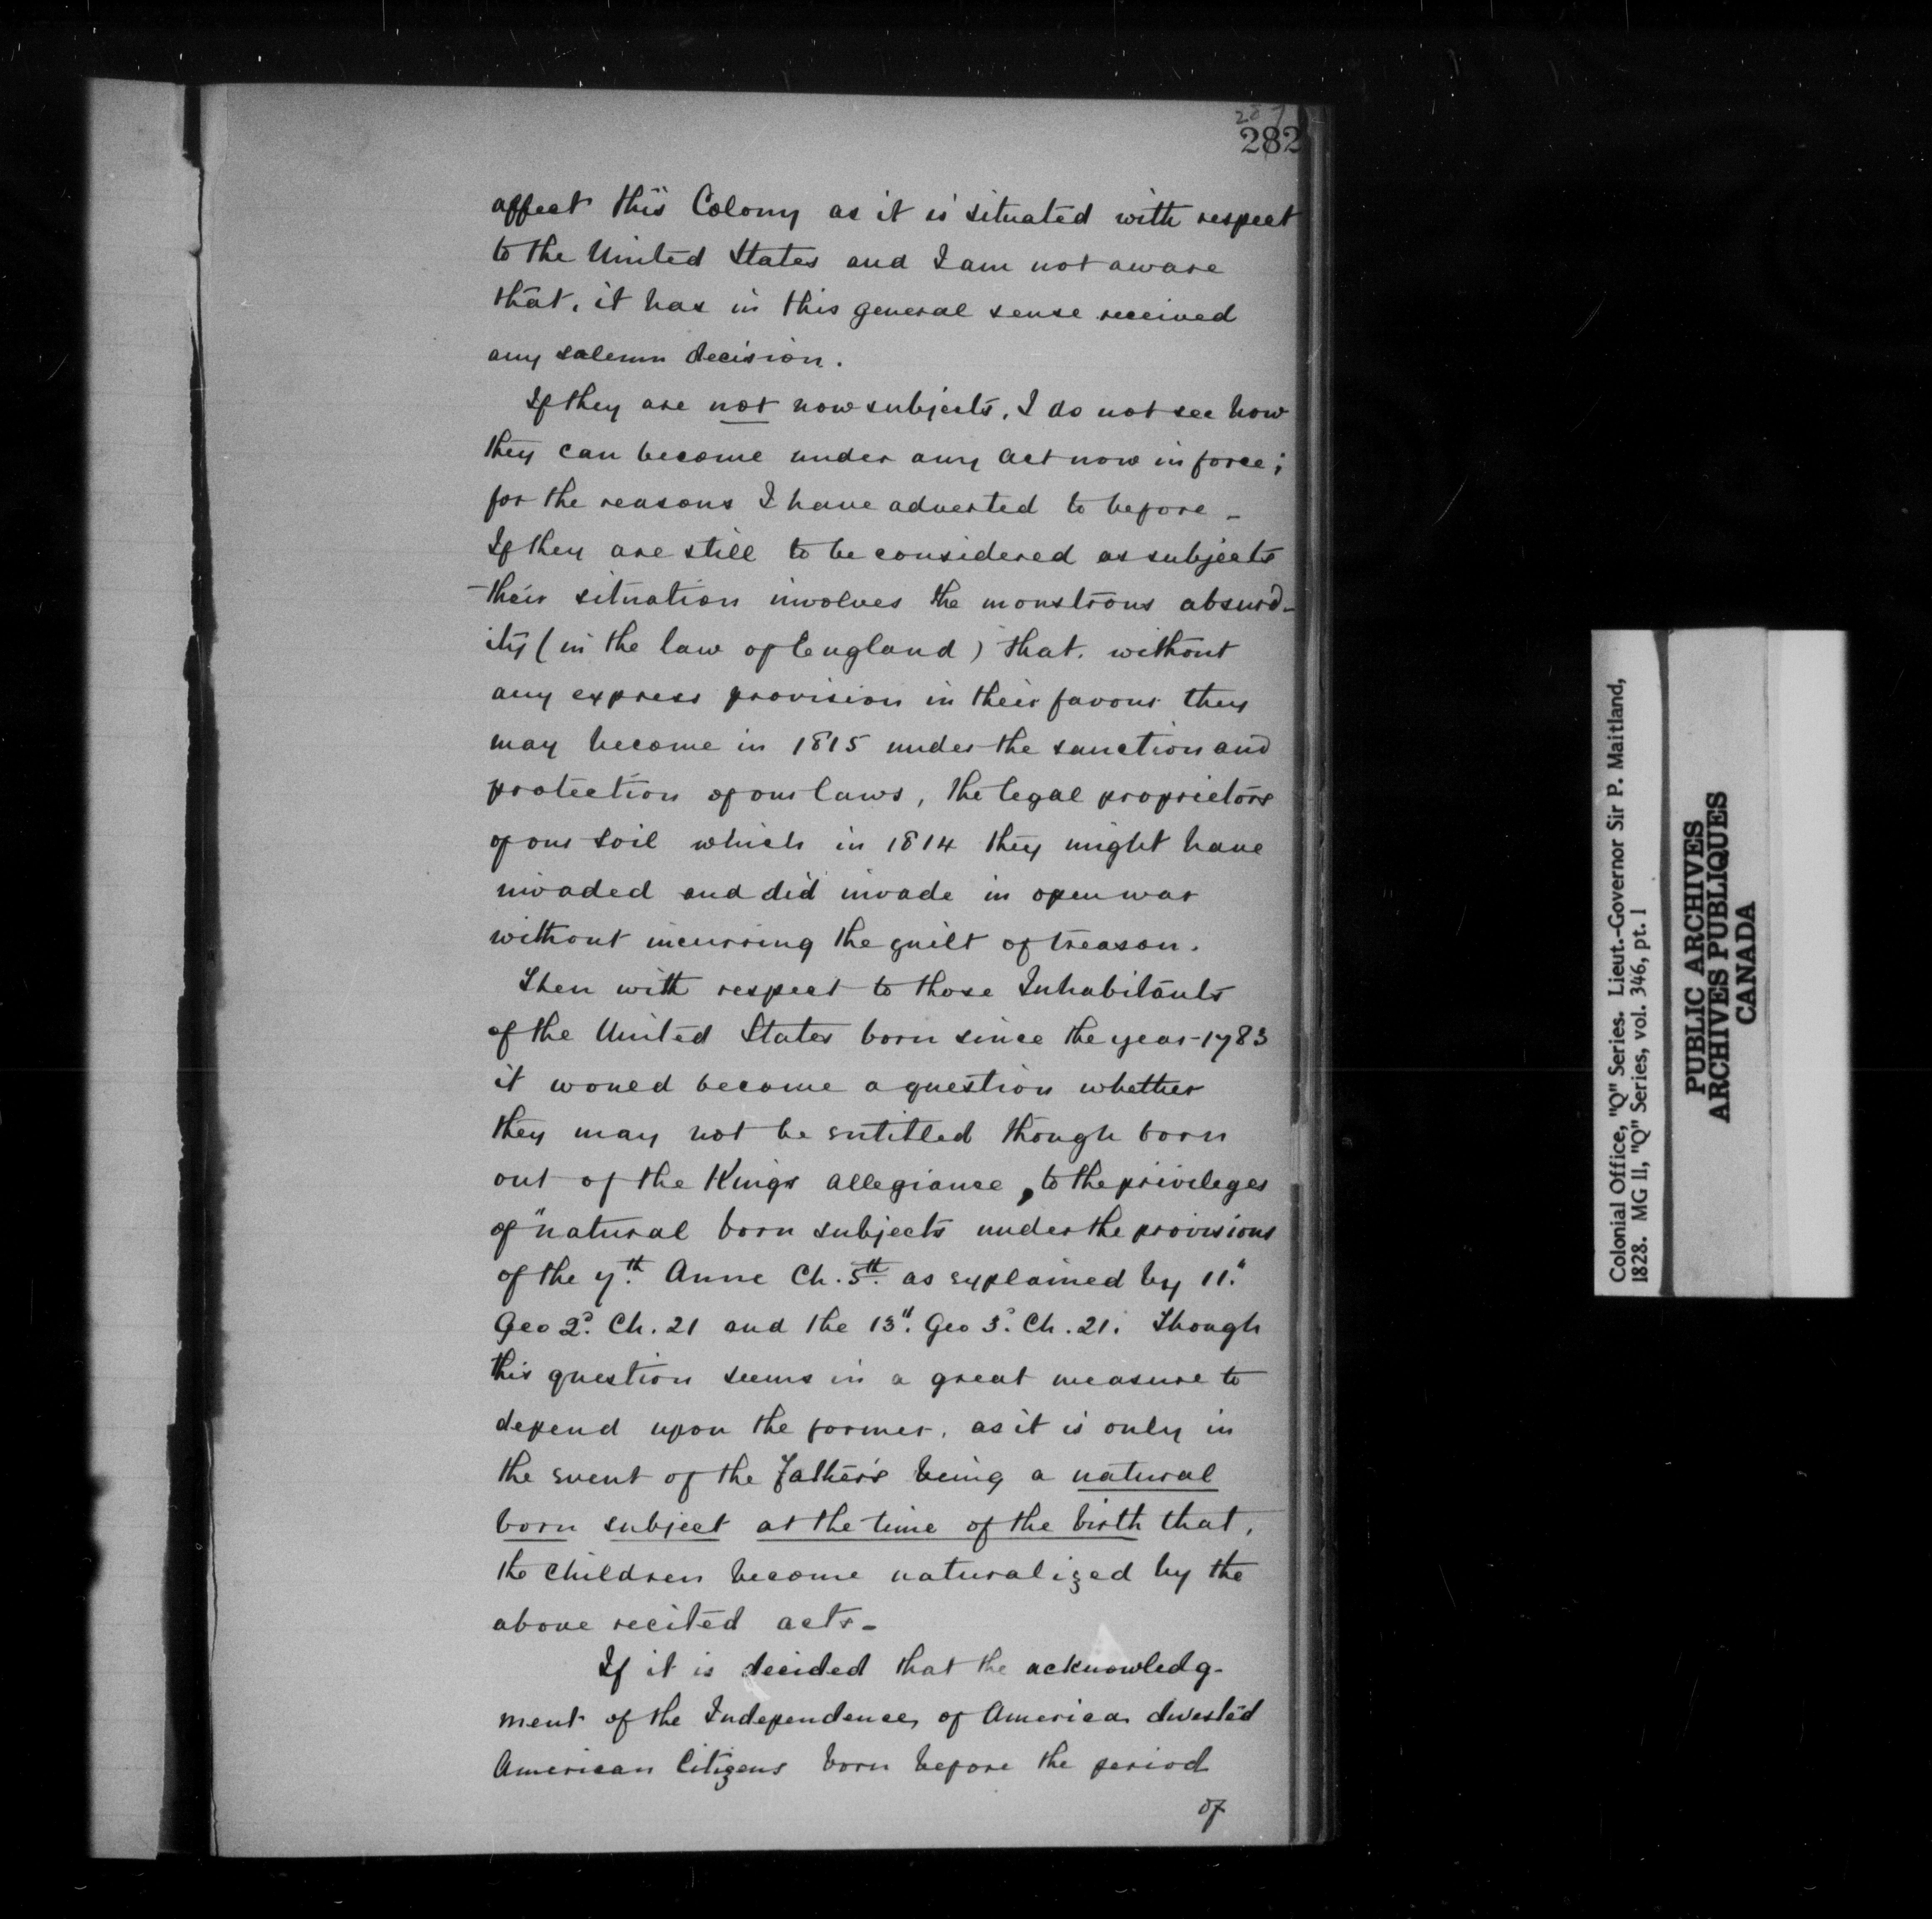 282
affect this Colony as it is situated with respect
to the United States and I am not aware
that, it has in this general sense received
any solemn decision.
If they are not now subjects, I do not see how
they can become under any act now in force;
for the reasons I have adverted to before -
If they are still to be considered as subjects
their situation involves the monstrous absurd-
ity (in the law of England) that. without
any express provision in their favour they
may become in 1815 under the sanction and
protection of our laws, the legal proprietors
of our soil which in 1814 they might have
invaded and did invade in open war
without incurring the guilt of treason.
Then with respect to those Inhabitants
of the United States born since the year 1783
it would become a question whether
they may not be entitled though born
out of the Kings allegiance, to the privileges
of "natural born subjects under the provisions
of the 7th. Anne Ch. 5th. as explained by 11."
Geo 2d. Ch. 21 and the 13". Geo 3d. Ch. 21. Though
this question seems in a great measure to
depend upon the former, as it is only in
the event of the father's being a natural
born subject at the time of the birth that,
the children become naturalized by the
above recited acts -
If it is decided that the acknowledg-
ment of the Independence, of America divested
American Citizens born before the period
of
Colonial Office, "Q" Series. Lieut.-Governor Sir P. Maitland,
1828. MG 11, "Q" Series, vol. 346, pt. 1
PUBLIC ARCHIVES
ARCHIVES PUBLIQUES
CANADA